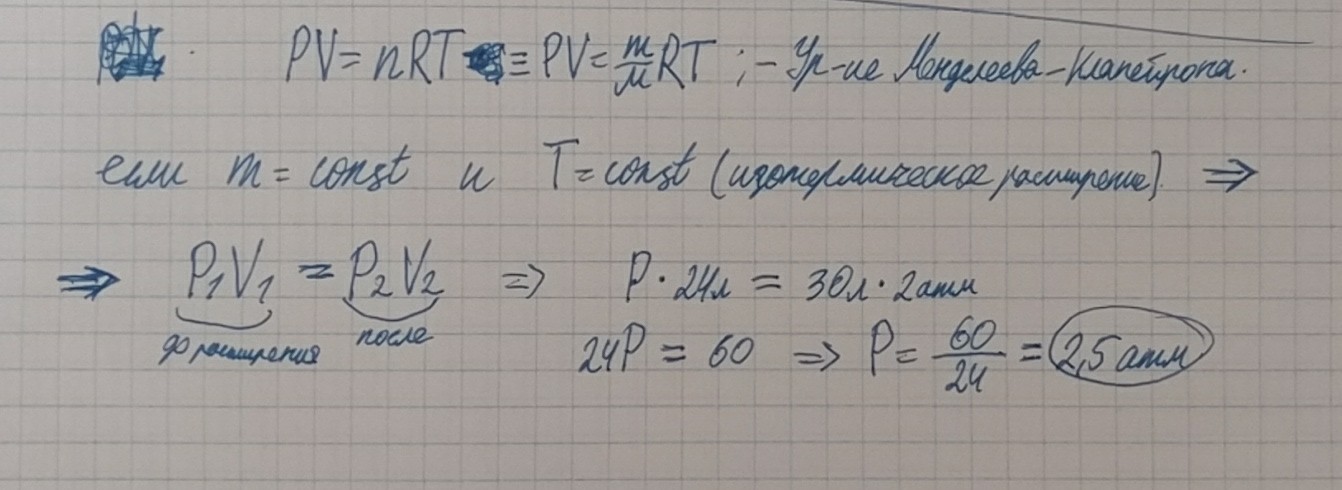 PV = nRT ≡ PV = m/M RT ; - Ур-ие Менделеева-Клапейрона.
если m = const и T = const (изотермическое расширение) ⇒
⇒ P₁V₁ = P₂V₂ ⇒ P · 24л = 30л · 2атм
до расширения после
24P = 60 ⇒ P = 60/24 = 2,5 атм